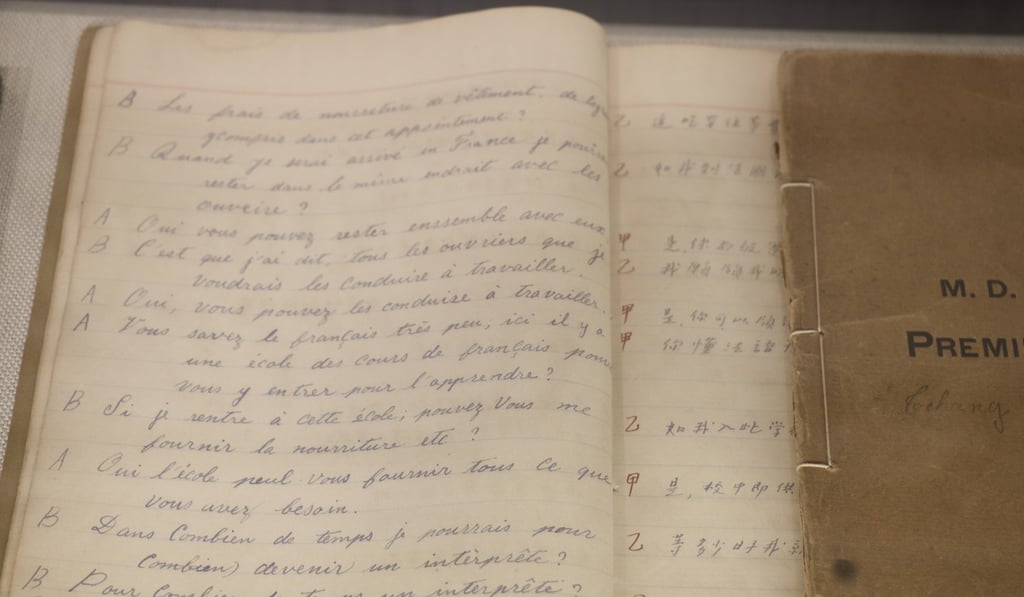 B Les frais de nourriture de vêtement. de
ycompris dans cet appointement?
B Quand je serai arrivé in France je
rester dans le même endroit avec les
ouveire?
A Oui vous pouvez rester enssemble avec eux
B C'est que j'ai dit, tous les ouvriers que je
voudrais les conduise à travailler.
A Oui, vous pouvez les conduise à travailler.
A Vous savez le français très peu, ici il y a
une école des cours de français pour
vous y entrer pour l'apprendre?
B Si je rentre à cette école; pouvez vous me
fournir la nourriture etc?
A Oui l'école peul vous fournir tous ce que
vous avez besoin.
B Dans Combien de temps je pourrais pour
Combien) devenir un interprète?
B Pour Combien de un interprête?
乙
乙 如我到法國
甲 是你
乙 我
甲 是,你可以
甲 你懂法
乙 如我入此学
甲 是,校中即供
乙 等多少时我
M. D.
PREMI
Tchang